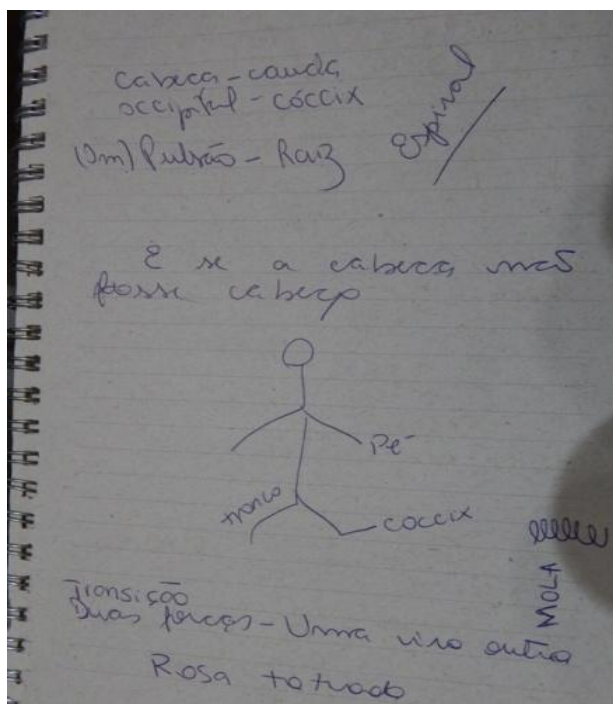 cabeça - cauda
occipital - cóccix
Espiral
(Im) Pulsão - Raiz
E se a cabeça não
fosse cabeça
Pé
tronco
cóccix
MOLA
Transição
Duas forças - Uma vira outra
Rosa tatuado